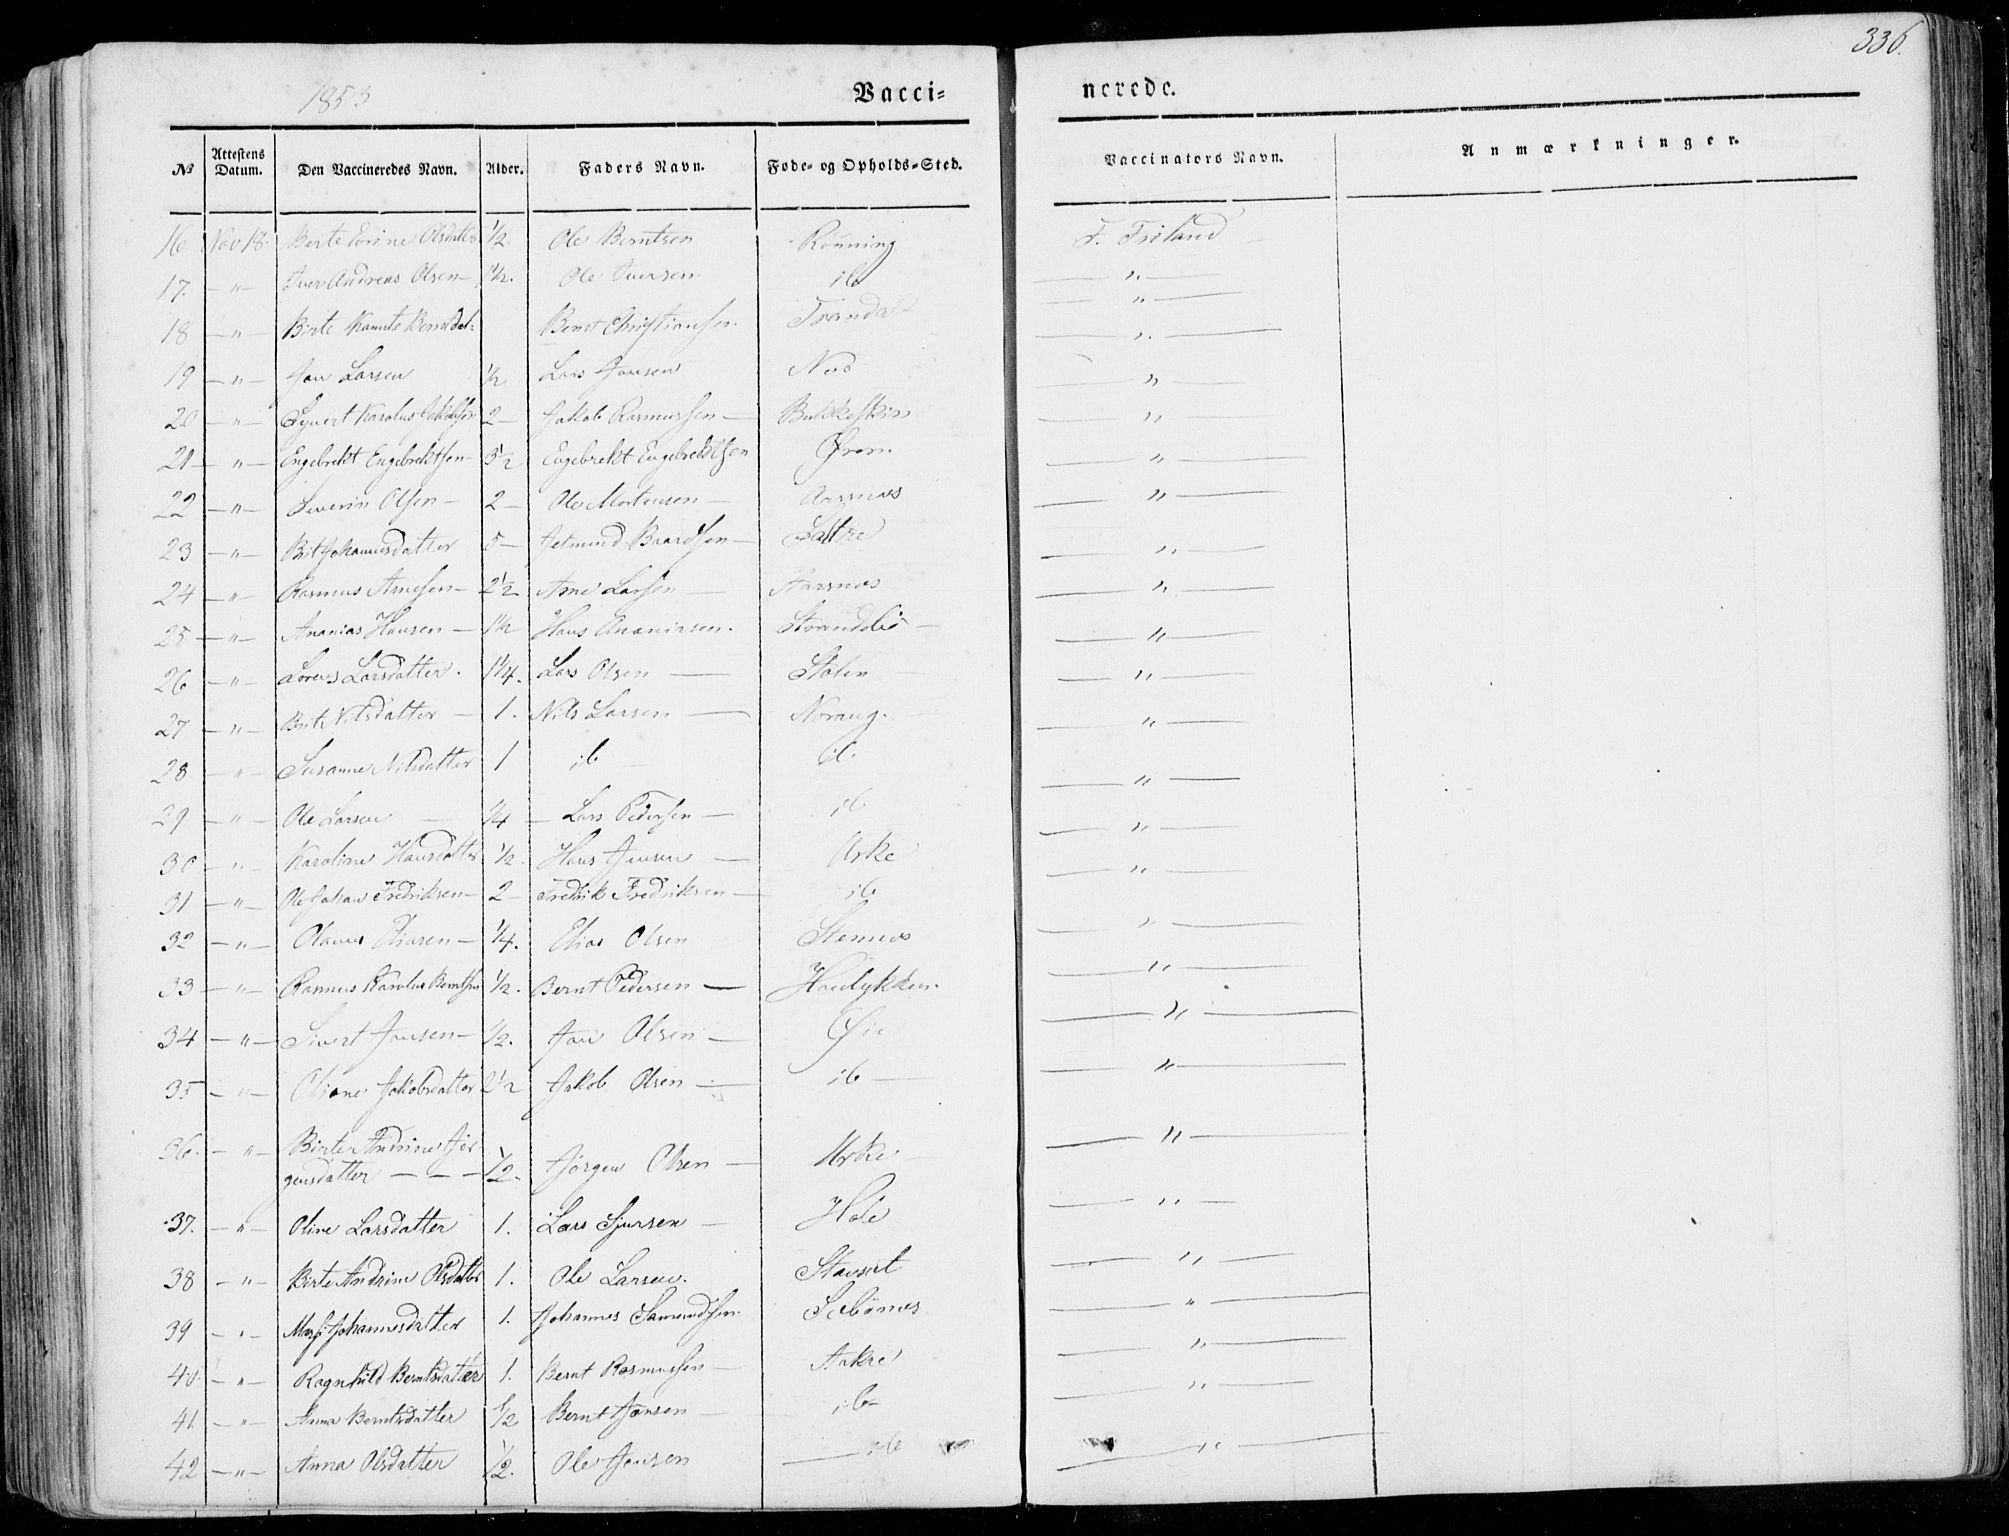 336.
1853
Vacci=
nerede.
№ Attestens Datum. Den Vaccineredes Navn. Alder. Faders Navn. Føde- og Opholds=Sted. Vaccinators Navn. Anmærkninger.
16 Nov 18. Berte Olsdatter 1/2. Ole Berntsen Rönning F. Friland
17. — " — Iver Andreas Olsen — 1 1/2. Ole Iversen ib — " —
18 — " — Birte Berntdat: Bernt Christiansen. Trandal — " —
19 — " — Jon Larsen 1/2 Lars Jonsen Nod — " —
20 — " — Syvert Karolus Jakobsen 2 — Jakob Rasmussen — — " —
21 — " — Engebrekt Engebrektsen — 5 1/2 Engebrekt Engebrektsen — " —
22 — " — Severin Olsen — 2 — Ole Mortensen — Aarsnes — " —
23 — " — Brit Johannesdatter 5 — Jetmund Baardsen — Sætre — " —
24 — " — Rasmus Arnesen — 2 1/2 Arne Larsen — Aarsnes — " —
25 — " — Ananias Hansen — 1 1/2 Hans Ananiasen. — " —
26 — " — Larsdatter. 1 1/4. Lars Olsen — Stölen — " —
27 — " — Brit Nilsdatter — 1. Nils Larsen — Norang. — " —
28 — " — Susanne Nilsdatter 1 ib ib — " —
29 — " — Ole Larsen — 1/4 — Lars Pedersen — ib — " —
30 — " — Karoline Hansdatter 1/2. Hans Jensen — Urke — " —
31 — " — Ole Johan Fredriksen — 2 — Fredrik Fredriksen — ib — " —
32 — " — Olaus Eliasen — 1/4. Elias Olsen Stennes — " —
33 — " — Rasmus Karolus Berntsen 1/2. Bernt Pedersen — — " —
34 — " — Sivert Jonsen — 1/2. Jon Olsen — Öie — " —
35 — " — Oliane Jakobsdatter 2 1/2 Jakob Olsen — ib — — " —
36. — " — Birte Andrine Jör
gensdatter — — — 1/2. Jörgen Olsen — Urke — " —
37. — " — Oline Larsdatter 1. Lars Sjursen — Hole — " —
38 — " — Birte Andrine Olsdatter 1. Ole Larsen. Stavset — " —
39 — " — Johannesdatter 1. Johannes Samundsen. Sæbönes — " —
40. — " — Ragnhild Berntsdatter 1. Bernt Rasmussen — Aakre — " —
41 — " — Anna Berntsdatter 1/2 Bernt Jonsen — ib — — " —
42 — " — Anna Olsdatter 1/2. Ole Jonsen — ib — " —